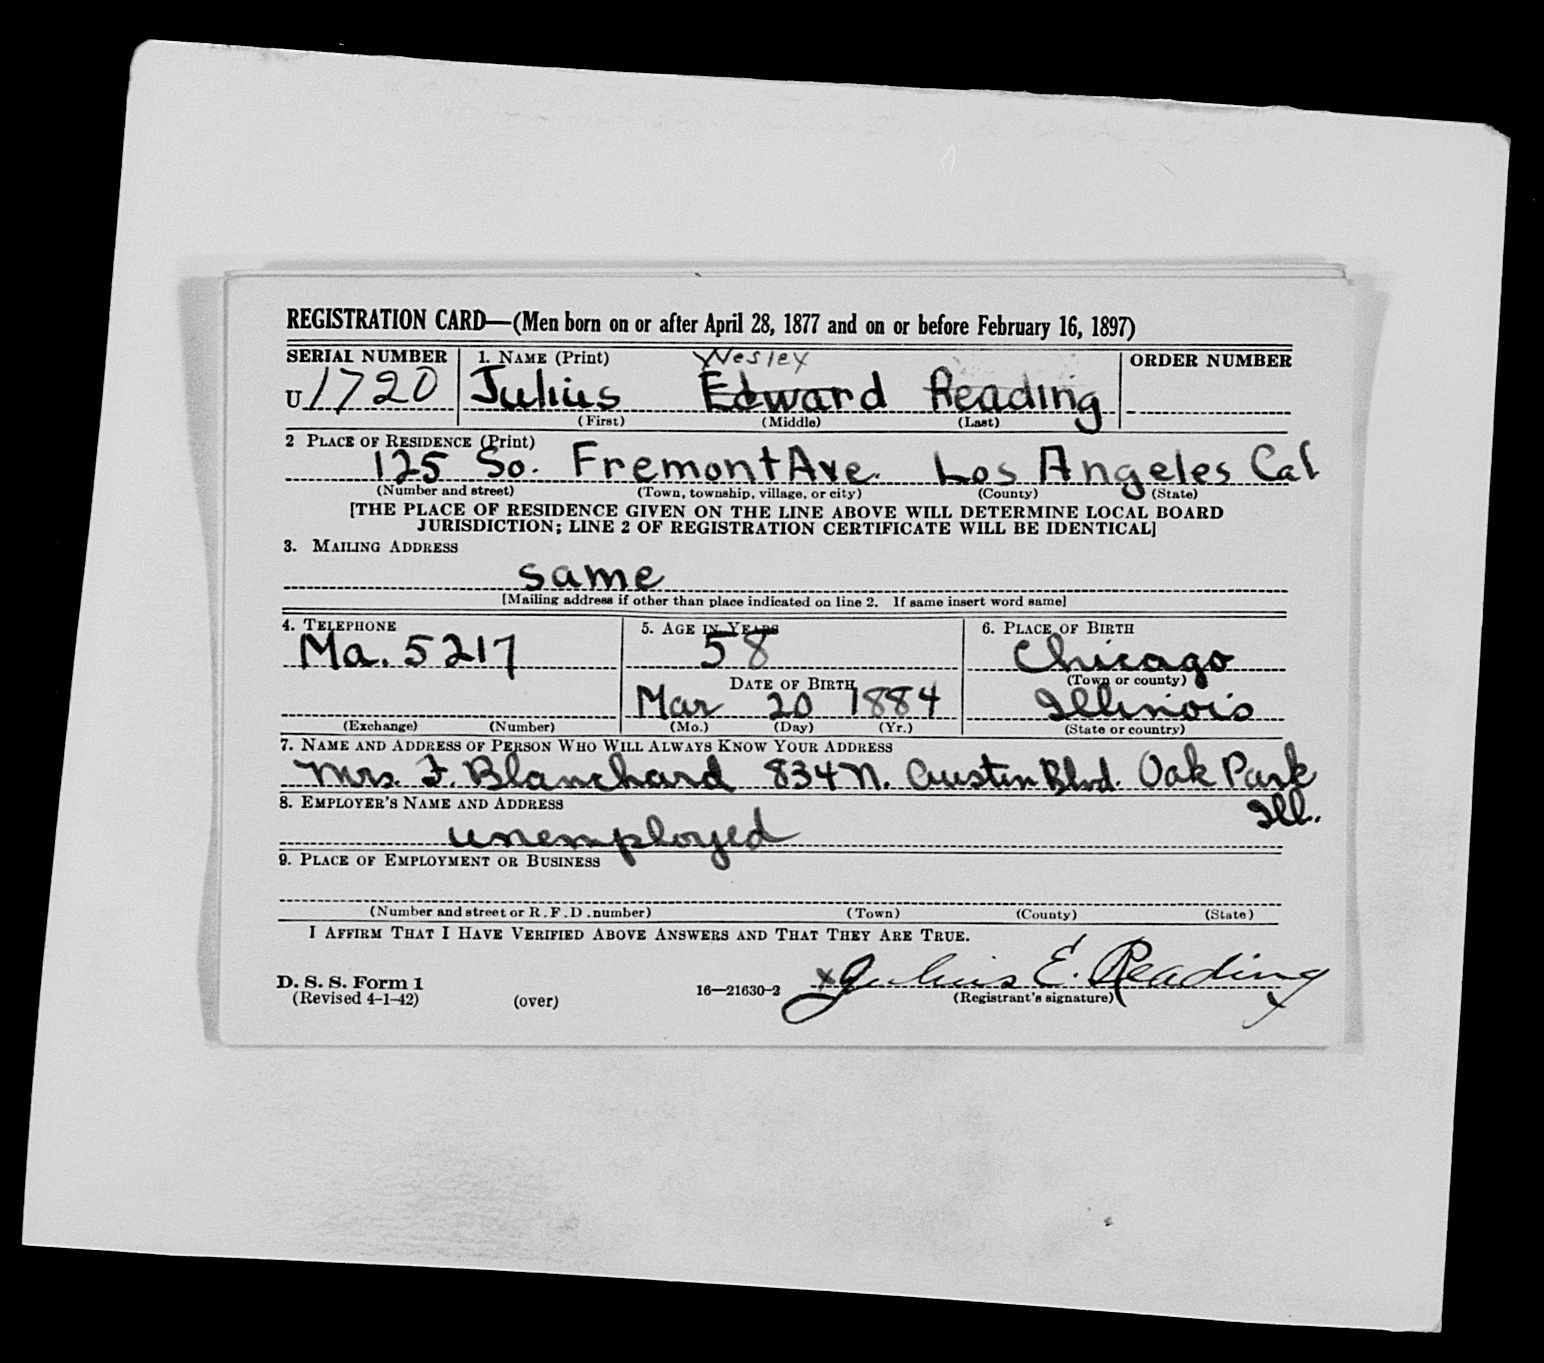 REGISTRATION CARD—(Men born on or after April 28, 1877 and on or before February 16, 1897)
SERIAL NUMBER 1. NAME (Print) Wesley ORDER NUMBER
U 1720 Julius Edward Reading
(First) (Middle) (Last)
2 PLACE OF RESIDENCE (Print)
125 So. Fremont Ave. Los Angeles Cal
(Number and street) (Town, township, village, or city) (County) (State)
[THE PLACE OF RESIDENCE GIVEN ON THE LINE ABOVE WILL DETERMINE LOCAL BOARD
JURISDICTION; LINE 2 OF REGISTRATION CERTIFICATE WILL BE IDENTICAL]
3. MAILING ADDRESS
same
[Mailing address if other than place indicated on line 2. If same insert word same]
4. TELEPHONE 5. AGE IN YEARS 6. PLACE OF BIRTH
Ma. 5217 58 Chicago
DATE OF BIRTH (Town or county)
Mar 20 1884 Illinois
(Exchange) (Number) (Mo.) (Day) (Yr.) (State or country)
7. NAME AND ADDRESS OF PERSON WHO WILL ALWAYS KNOW YOUR ADDRESS
Mrs. F. Blanchard 834 N. Austin Blvd. Oak Park
8. EMPLOYER'S NAME AND ADDRESS Ill.
unemployed
9. PLACE OF EMPLOYMENT OR BUSINESS
(Number and street or R.F.D. number) (Town) (County) (State)
I AFFIRM THAT I HAVE VERIFIED ABOVE ANSWERS AND THAT THEY ARE TRUE.
D. S. S. Form 1 x Julius E. Reading
(Revised 4-1-42) (over) 16—21630-2 (Registrant's signature)